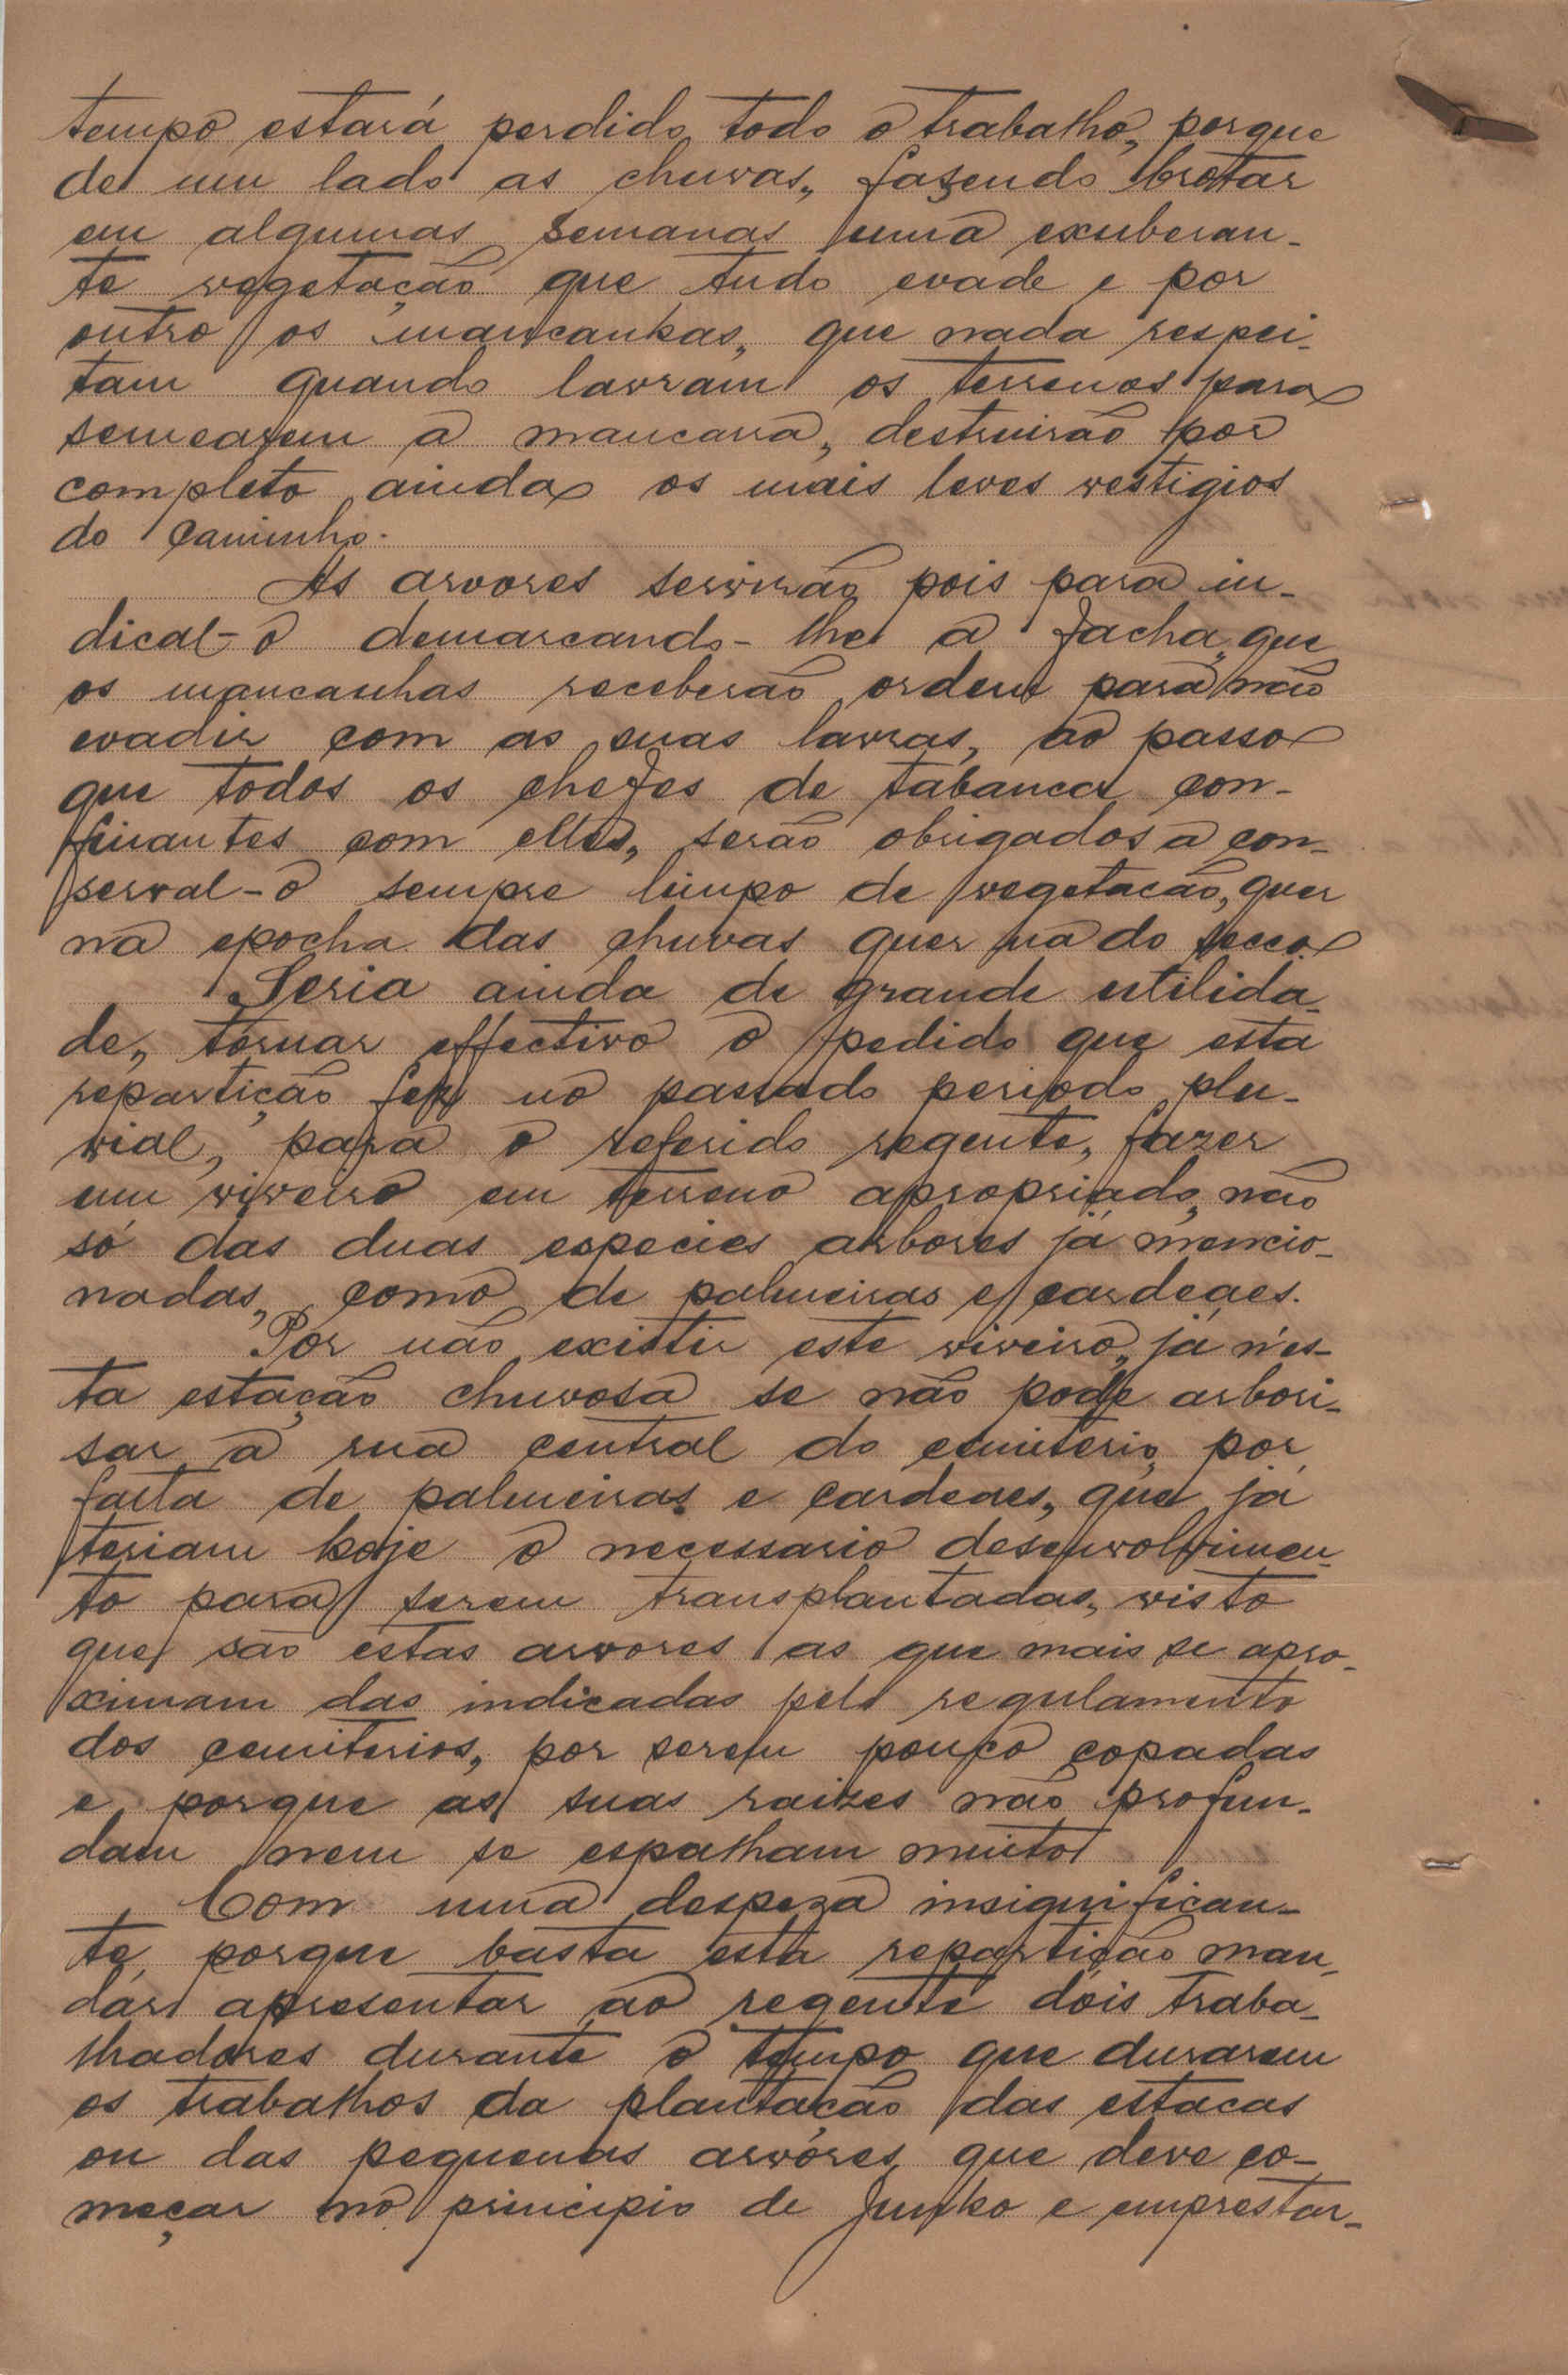 tempo estará perdido todo o trabalho, porque
de um lado as chuvas, fazendo brotar
em algumas semanas uma exuberan-
te vegetação que tudo evade e por
outro os mancanhas, que nada respei-
tam quando lavram os terrenos para
semearem a mancarra, destruirão por
completo ainda os mais leves vestigios
do caminho.
As arvores servirão pois para in-
dical-o demarcando-lhe a facha, que
os mancanhas receberão ordem para não
evadir com as suas lavras, ao passo
que todos os chefes de tabanca con-
finantes com elles, serão obrigados a con-
serval-o sempre limpo de vegetacão, quer
na epocha das chuvas quer na do secco.
Seria ainda de grande utilida-
de, tornar effectivo o pedido que esta
repartição fez no passado periodo plu-
vial, para o referido regente, fazer
um viveiro em terreno apropriado, não
só das duas especies arbores já mencio-
nadas, como de palmeiras e cardeaes.
Por não existir este viveiro, já n'es-
ta estação chuvosa se não pode arbori-
sar a rua central do cemiterio, por
falta de palmeiras e cardeaes, que já
teriam hoje o necessario desenvolvimen-
to para serem transplantadas, visto
que são estas arvores as que mais se apro-
ximam das indicadas pelo regulamento
dos cemiterios, por serem pouco copadas
e porque as suas raizes não profun-
dam nem se espalham muito
Com uma despeza insignifican-
te, porque basta esta repartição man-
dar apresentar ao regente dois traba-
lhadores durante o tempo que durarem
os trabalhos da plantação das estacas
ou das pequenas arvóres, que deve co-
meçar no principio de Junho e emprestar-